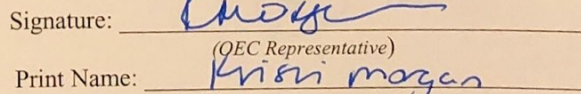 Signature:
(OEC Representative)
Print Name: Kristi Morgan